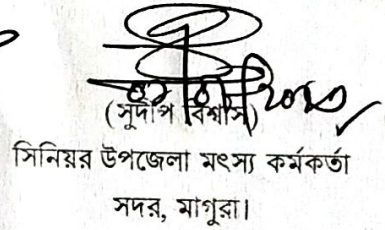 (সুদীপ বিশ্বাস)
সিনিয়র উপজেলা মৎস্য কর্মকর্তা
সদর, মাগুরা।